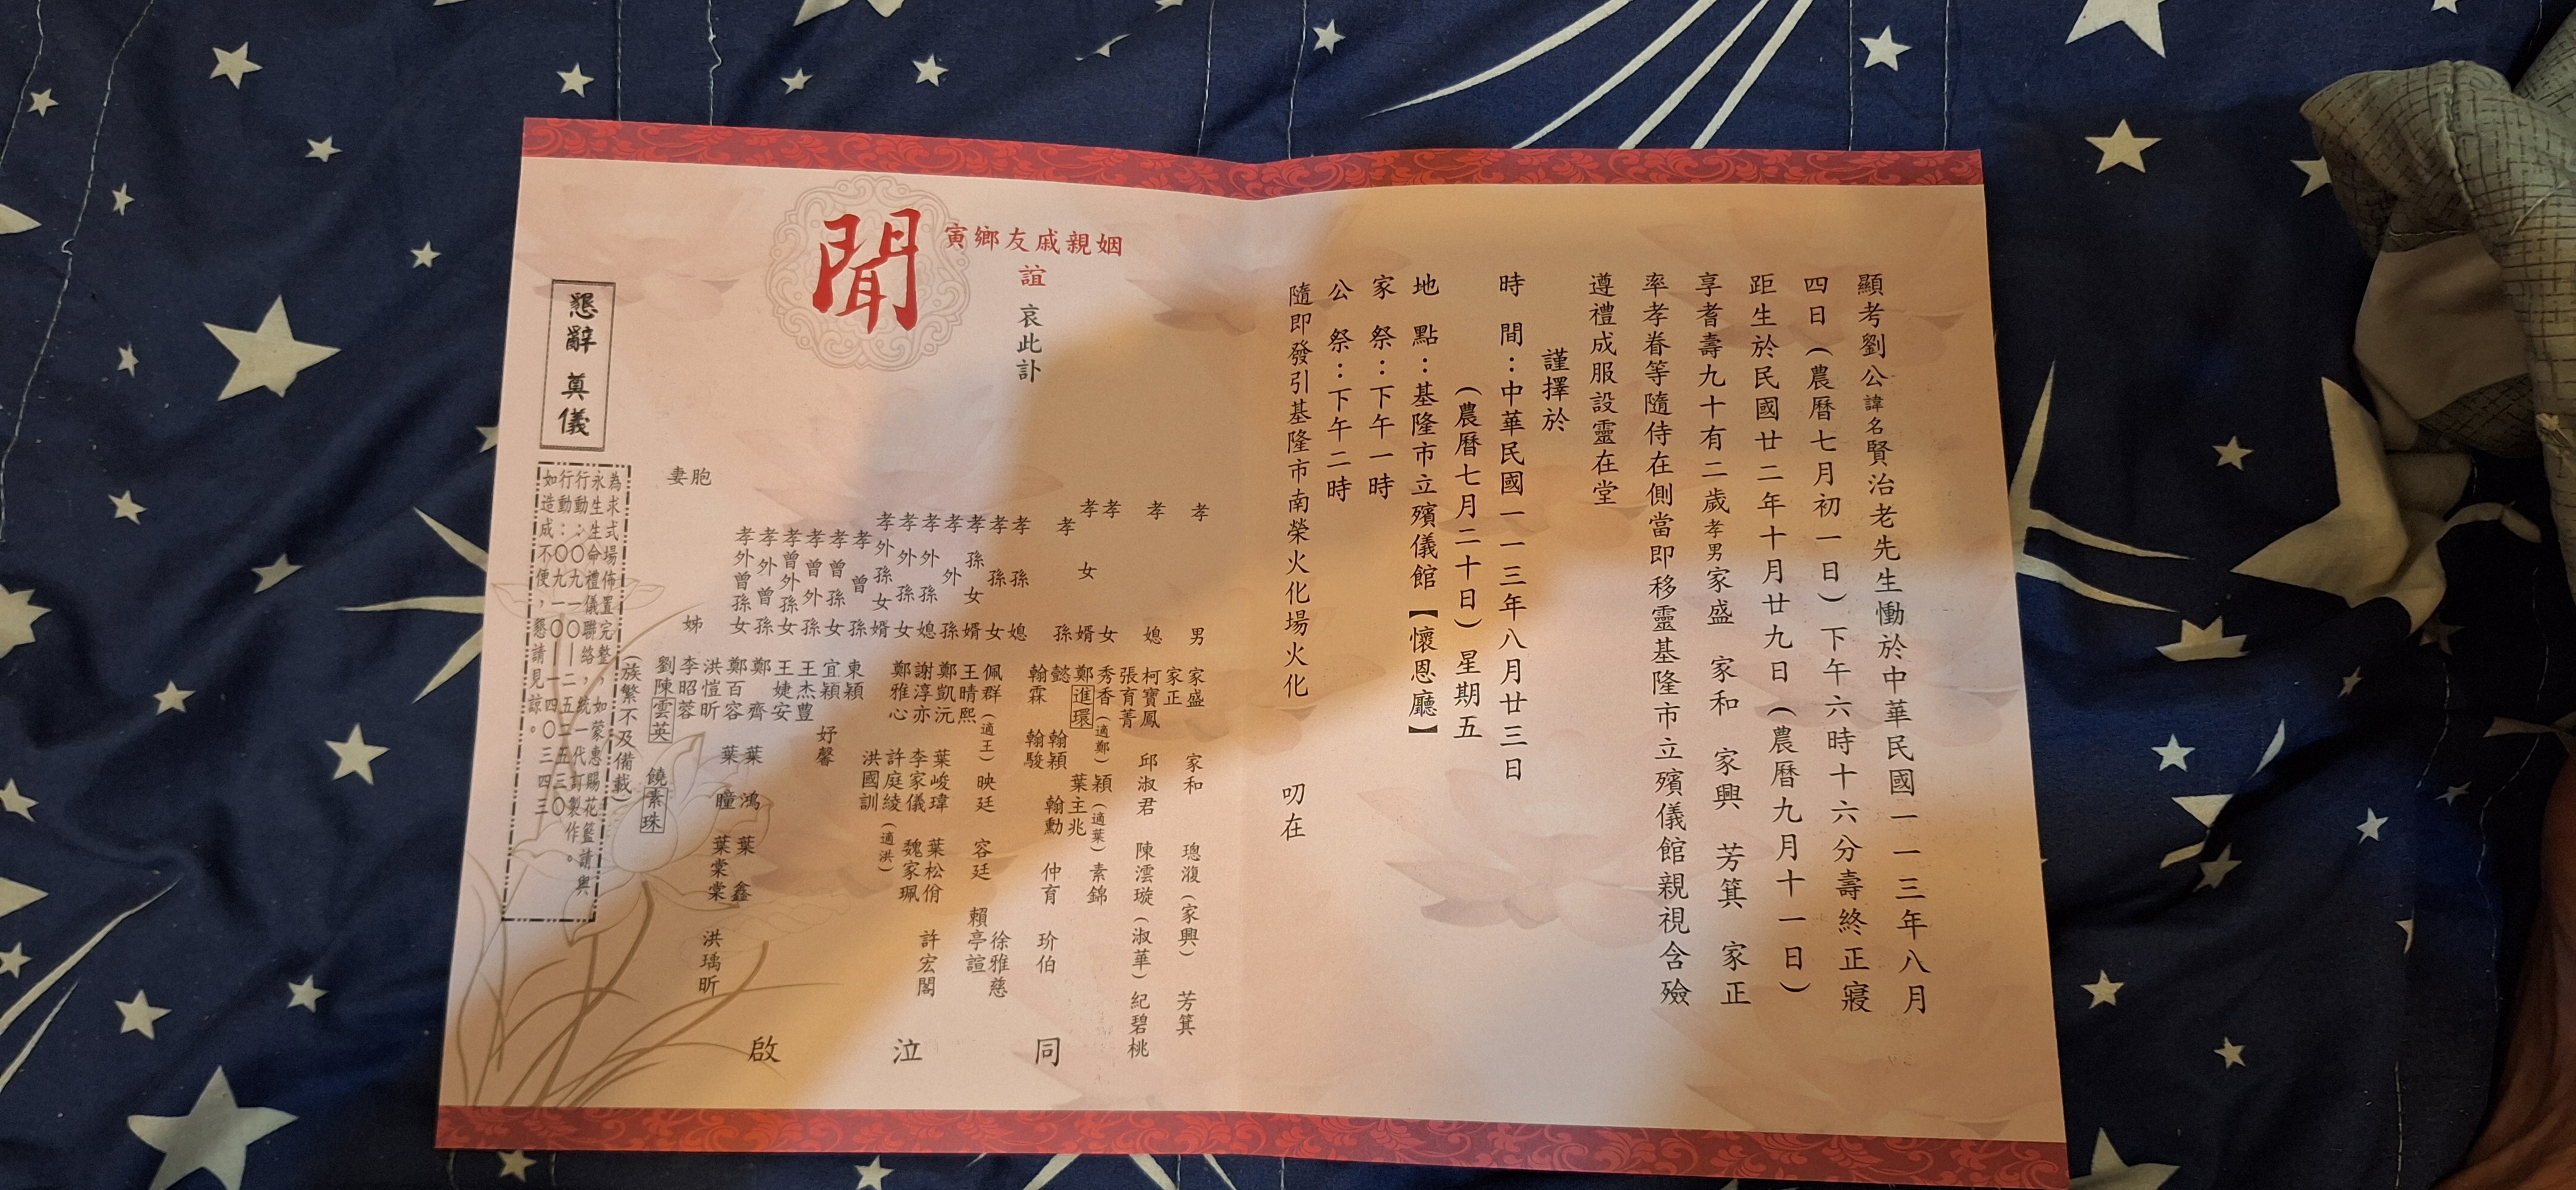 顯考劉公諱名賢治老先生慟於中華民國一一三年八月
四日(農曆七月初一日)下午六時十六分壽終正寢
距生於民國廿二年十月廿九日(農曆九月十一日)
享耆壽九十有二歲孝男家盛 家和 家興 芳箕 家正
率孝眷等隨侍在側當即移靈基隆市立殯儀館親視含殮
遵禮成服設靈在堂
謹擇於
時 間：中華民國一一三年八月廿三日
(農曆七月二十日)星期五
地 點：基隆市立殯儀館【懷恩廳】
家 祭：下午一時
公 祭：下午二時
隨即發引基隆市南榮火化場火化
叨在
姻親戚友鄉寅
誼
哀此訃
聞
孝男 家盛 家和 璁澓(家興) 芳箕
家正
孝媳 柯寶鳳 邱淑君 陳澐璇(淑華) 紀碧桃
張育菁
孝女 秀香(適鄭) 穎(適葉) 素錦
孝婿 鄭進環 葉主兆
孝孫 懿 翰穎 翰勳 仲育 玠伯
翰霖 翰駿
孝孫媳 徐雅慈
孝孫女 佩群(適王) 映廷 容廷 賴亭諠
孝孫女婿 王晴熙
孝外孫 鄭凱沅 葉峻瑋 葉松佾
孝外孫媳 謝淳亦 李家儀 魏家珮 許宏閣
孝外孫女 鄭雅心 許庭綾(適洪)
孝外孫女婿 洪國訓
孝曾孫 東穎
孝曾孫女 宜穎 妤馨
孝曾外孫 王杰豊
孝曾外孫女 王婕安
孝外曾孫 鄭齊 葉鴻 葉鑫
孝外曾孫女 鄭百容 葉瞳 葉棠棠 洪瑀昕
洪愷昕
李昭蓉
胞姊
妻 劉陳雲英 饒素珠
(族繁不及備載)
同泣啟
懇辭 奠儀
為求式場佈置完整，如蒙惠賜花籃請與
永生生命禮儀聯絡，統一代訂製作。
行動：〇九一〇｜二五二五三〇
行動：〇九一〇｜一四〇三四三
如造成不便，懇請見諒。